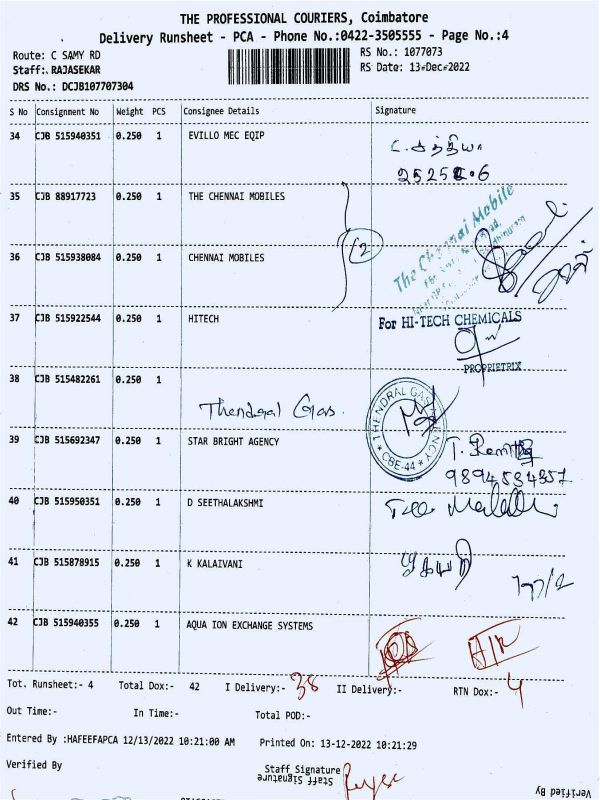 THE PROFESSIONAL COURIERS, Coimbatore
Delivery Runsheet - PCA - Phone No.:0422-3505555 - Page No.:4
Route: C SAMY RD
RS No.: 1077073
Staff: RAJASEKAR
RS Date: 13-Dec-2022
DRS No.: DCJB107707304
S No Consignment No Weight PCS Consignee Details Signature
34 CJB 515940351 0.250 1 EVILLO MEC EQIP
35 CJB 88917723 0.250 1 THE CHENNAI MOBILES
The Chennai Mobile
2
36 CJB 515938084 0.250 1 CHENNAI MOBILES
37 CJB 515922544 0.250 1 HITECH
For HI-TECH CHEMICALS
PROPRIETRIX
38 CJB 515482261 0.250 1
Thendral Gas.
THENDRAL GAS AGENCY
* CBE-44 *
39 CJB 515692347 0.250 1 STAR BRIGHT AGENCY
40 CJB 515950351 0.250 1 D SEETHALAKSHMI
41 CJB 515878915 0.250 1 K KALAIVANI
42 CJB 515940355 0.250 1 AQUA ION EXCHANGE SYSTEMS
Tot. Runsheet:- 4 Total Dox:- 42 I Delivery:- 38 II Delivery:- RTN Dox:- 4
Out Time:- In Time:- Total POD:-
Entered By :HAFEEFAPCA 12/13/2022 10:21:00 AM Printed On: 13-12-2022 10:21:29
Verified By
Staff Signature
Staff Signature
Verified By